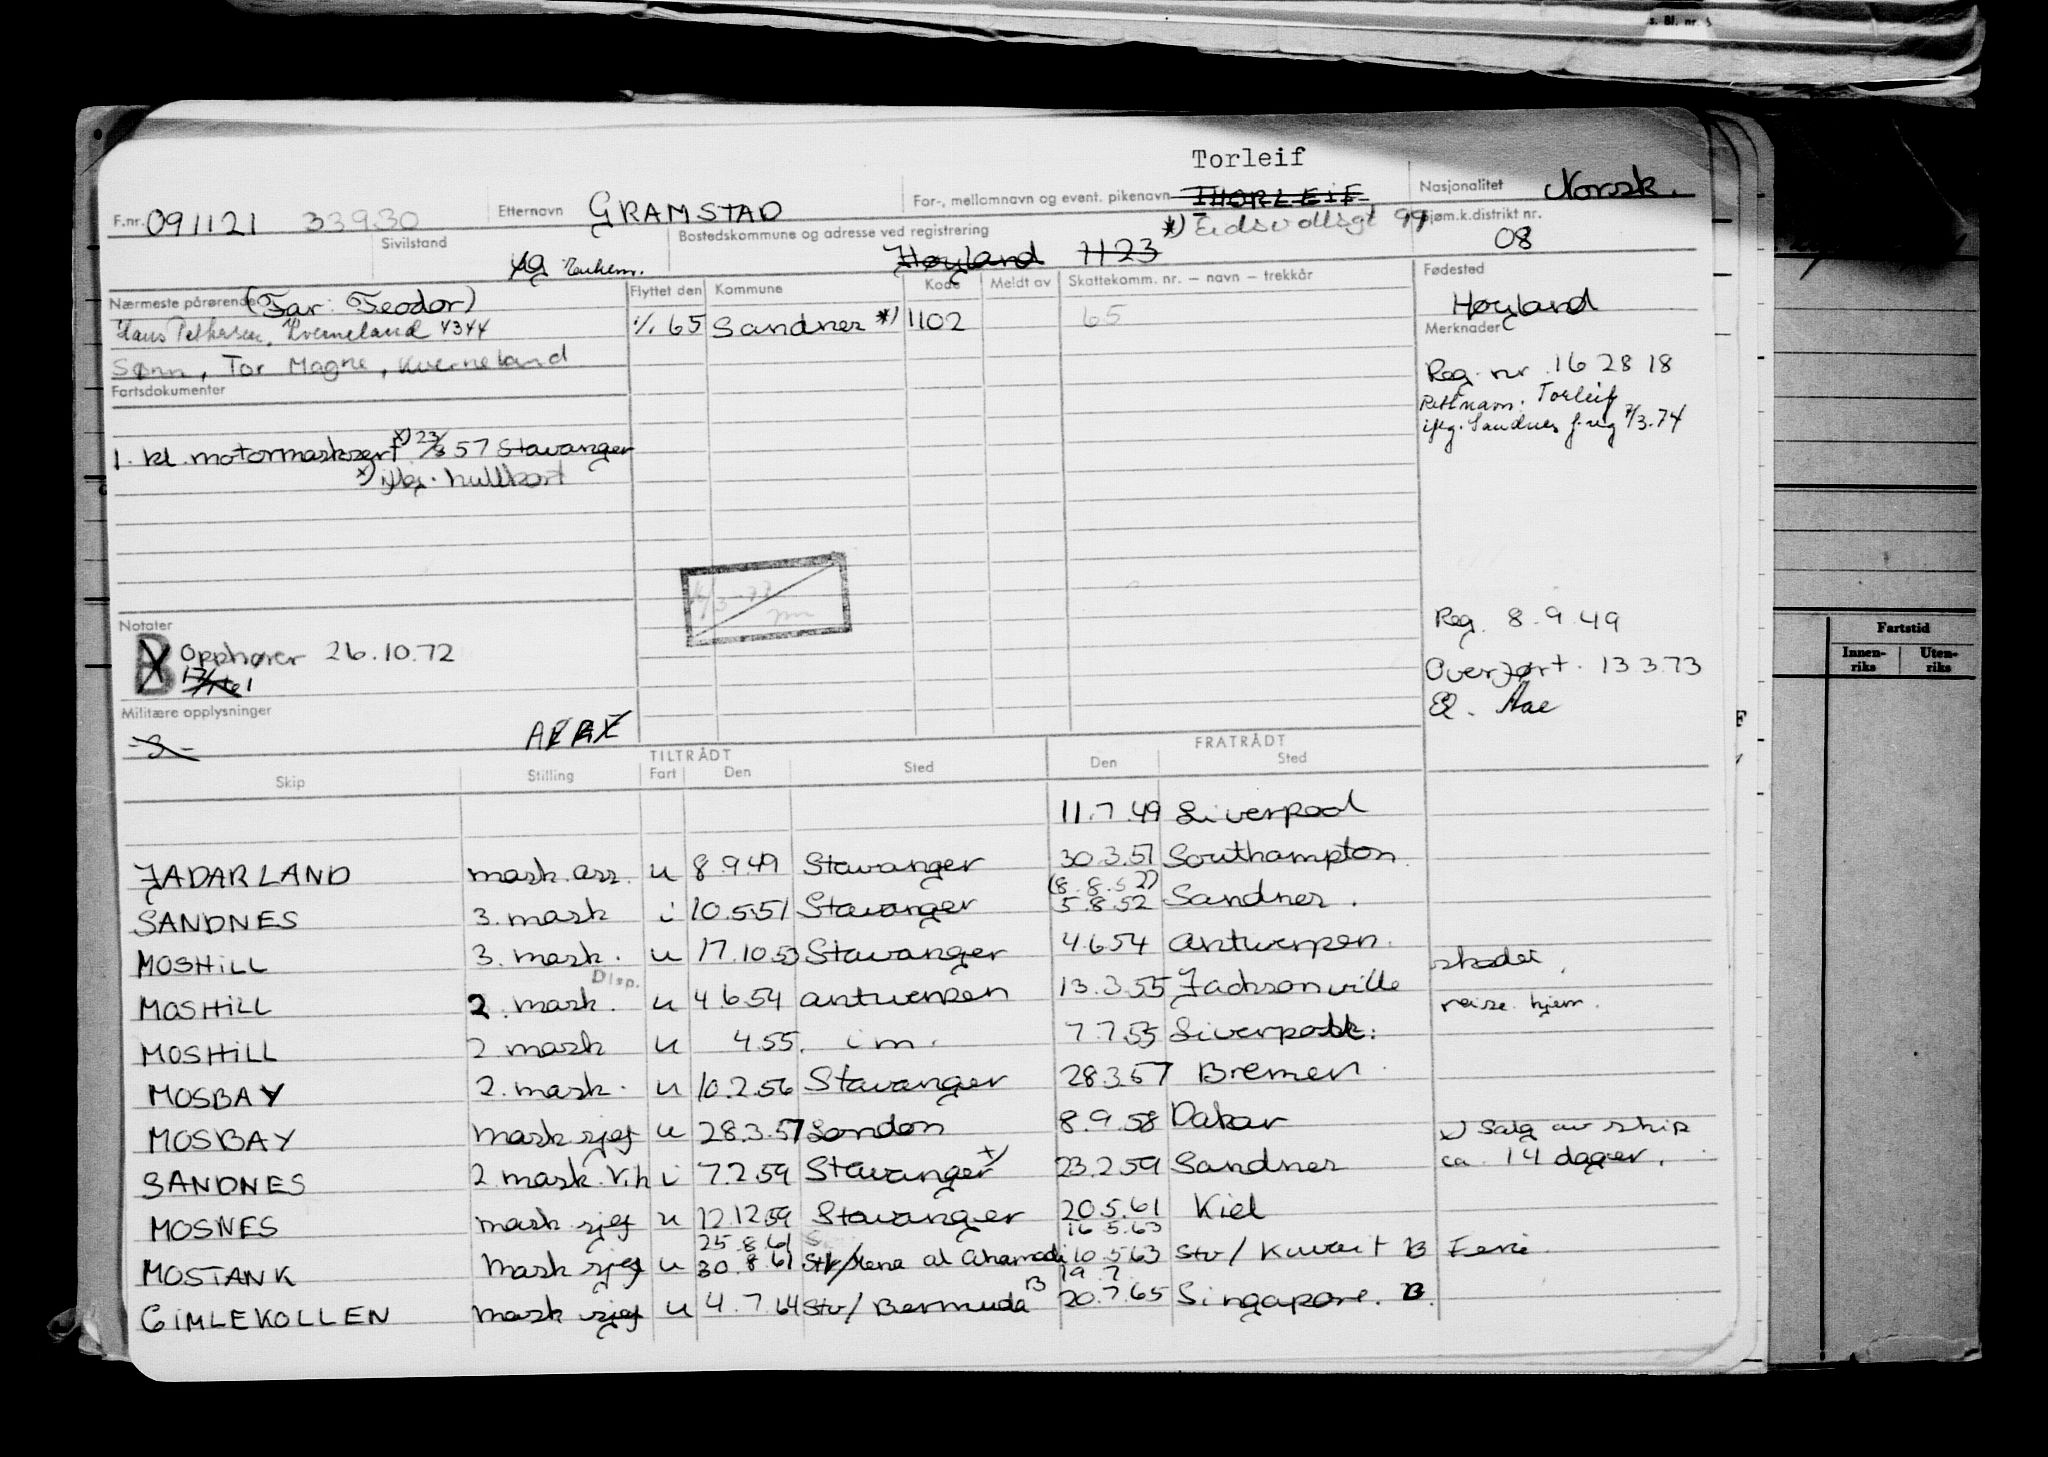 s. Bl. nr.
Torleif
F.nr. 091121 33930 Etternavn GRAMSTAD For-, mellomnavn og event. pikenavn THORLEIF Nasjonalitet Norsk.
Sivilstand Bostedskommune og adresse ved registrering *) Eidsvollsgt 99 Sjøm.k.distrikt nr.
Ug Enkem. Høyland 1123 08
Nærmeste pårørende (Far: Teodor) Flyttet den Kommune Kode Meldt av Skattekomm. nr. – navn – trekkår Fødested
Hans Pettersen, Kverneland 4344 1/1 65 Sandnes *) 1102 65 Høyland
Merknader
Sønn, Tor Magne, Kverneland Reg. nr. 16 28 18
Fartsdokumenter Rettnavn: Torleif
iflg. Sandnes f.reg 7/3.74
1. kl. motormasksert x) 23/3 57 Stavanger
x) iflg. hullkort
Notater Reg. 8.9.49
B Opphører 26.10.72
Overført. 13.3.73
Militære opplysninger Aae
TILTRÅDT FRATRÅDT
Skip Stilling Fart Den Sted Den Sted
11.7.49 Liverpool
JADARLAND mask.ass. u 8.9.49 Stavanger 30.3.51 Southampton
(8.8.52)
SANDNES 3. mask i 10.5.51 Stavanger 5.8.52 Sandnes.
MOSHILL 3. mask. u 17.10.53 Stavanger 4.6.54 Antwerpen. skadet,
Disp.
MOSHILL 2. mask. u 4.6.54 Antwerpen 13.3.55 Jacksonville reise hjem.
MOSHILL 2 mask u 4.55. im. 7.7.55
MOSBAY 2. mask. u 10.2.56 Stavanger 28.3.57 Bremen
MOSBAY mask sjef u 28.3.57 London 8.9.58 Dakar x) Salg av skip
SANDNES 2 mask. v.h i 7.2.59 Stavanger x) 23.2.59 Sandnes ca. 14 dager.
MOSNES mask sjef u 12.12.59 Stavanger 20.5.61 Kiel
25.8.61 16.5.63
MOSTANK mask sjef u 30.8.61 Stv/Mena al Ahamadi 10.5.63 Stv/Kuwait B Ferie
B 19.7.
GIMLEKOLLEN mask sjef u 4.7.64 Stv/Bermuda 20.7.65 Singapore. B.
Fartstid
Innen-riks Uten-riks